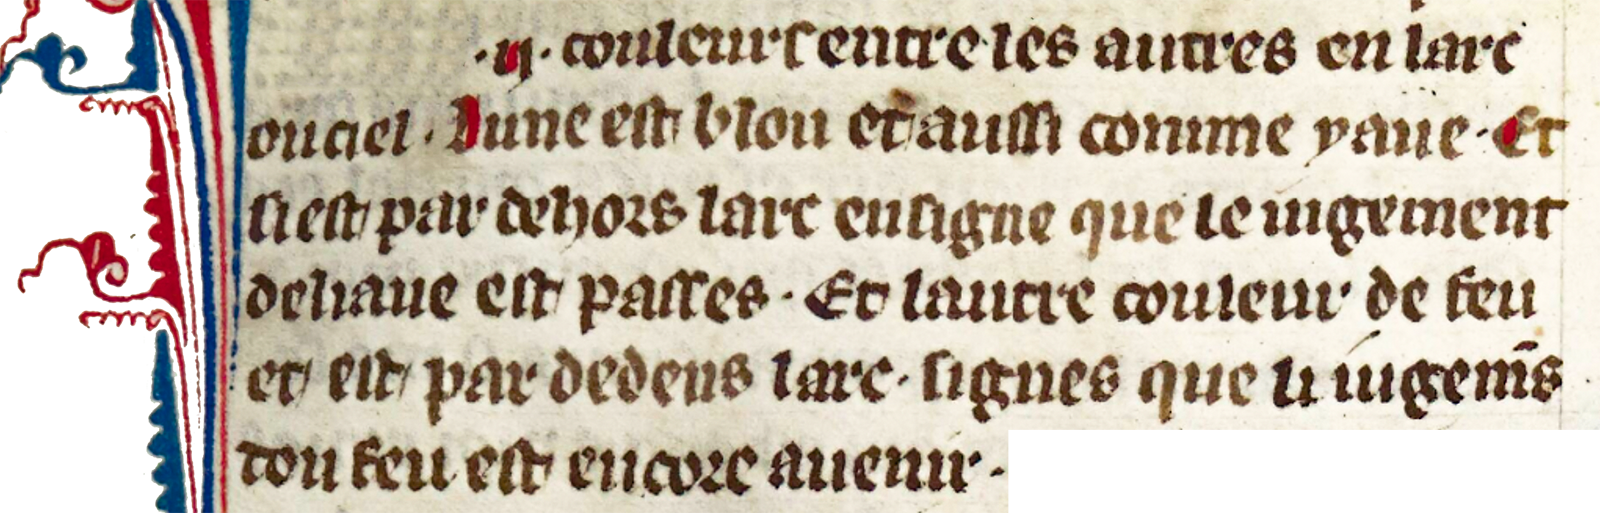 .ij. couleurs entre les autres en larc
ou ciel . Lune est blou et aussi comme yaue . Et
si est par dehors larc en signe que le iugement
deliaue est passes . Et lautre couleur de feu
et est par dedens larc . signes que li iugem̄s
dou feu est encore auenir .